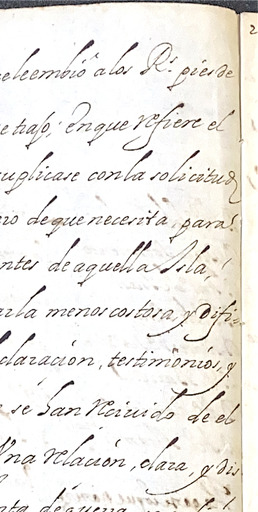 eleembió a los R.s pies de
e trajo; en que refiere el
suplicase con la solicitud
rio de que necesita, para
ntes de aquella Isla,
arla menos costosa, y difi-
claración, testimonios, y
se han reciuido de el
Vna relación, clara, y dis
nta de quena
2